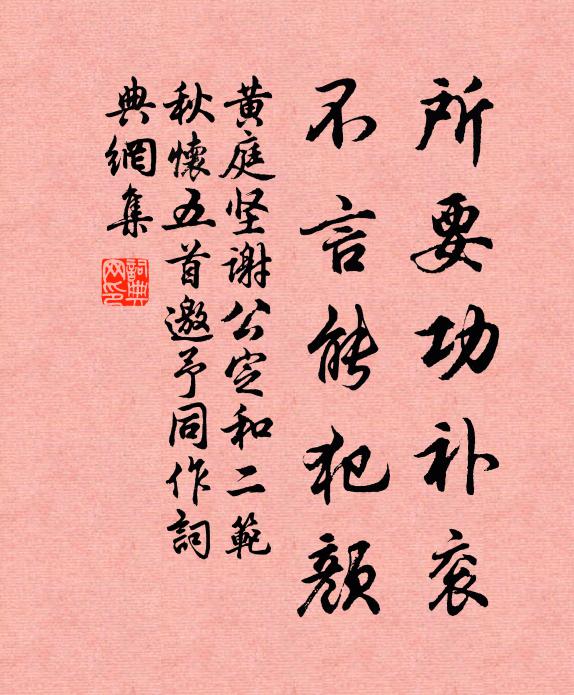 所要功补衮
不言能犯颜
黄庭坚谢公定和二範
秋懷五首邀予同作詞
典網集
詞典网印